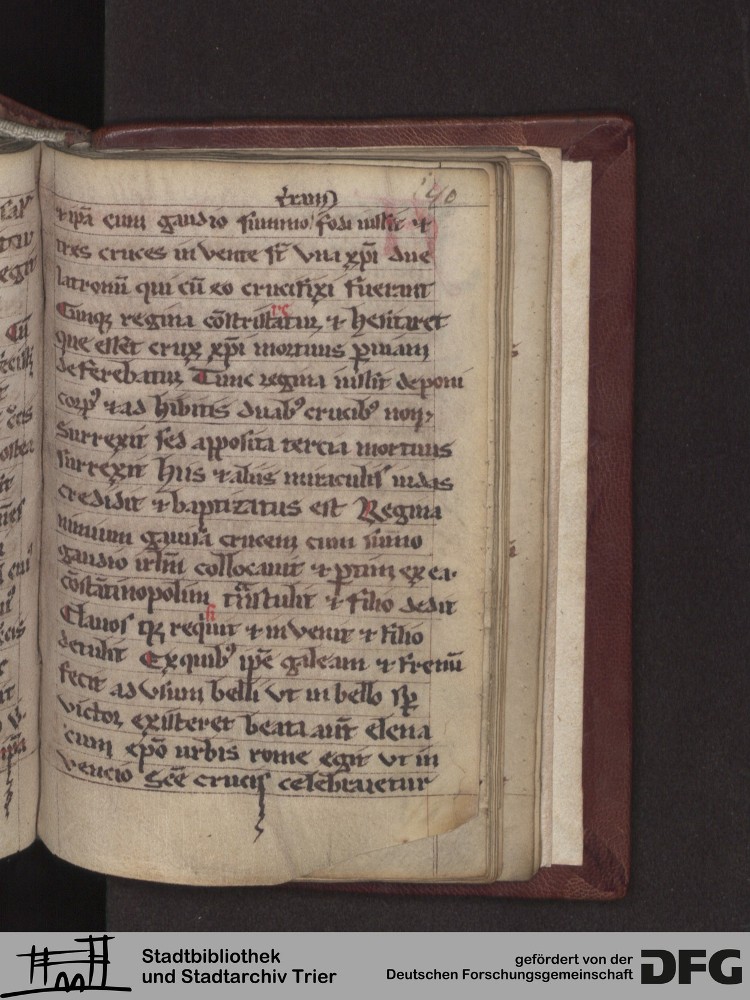 t̄ram
140
⁊ ip̄a cum gaudio summo fodi iussit ⁊
tres cruces inuente st̄ vna xp̄i due
latronū qui cū eo crucifixi fuerant
Cunq; regina cōstristaretur ⁊ hesitaret
que esset crux xp̄i mortuus p uiam
deferebatur Tunc regina iussit deponi
corpꝰ ⁊ ad hibitis duabꝰ crucibꝰ non
Surrexit sed apposita tercia mortuus
surrexit Hiis ⁊ aliis miraculis iudas
credidit ⁊ baptizatus est Regina
nimium gauisa crucem cum summo
gaudio irlm̄ collocauit ⁊ ptim ex ea
cōstātinopolim trāstulit ⁊ filio dedit
Clauos q; requisiuit ⁊ inuenit ⁊ filio
detulit Ex quibꝰ ip̄e galeam ⁊ frenū
fecit ad vsum belli vt in bello sp
victor existeret beata aūt elena
cum ep̄o urbis rome egit vt in
vencio sc̄e crucis celebraretur
Stadtbibliothek
und Stadtarchiv Trier
gefördert von der
Deutschen Forschungsgemeinschaft
DFG